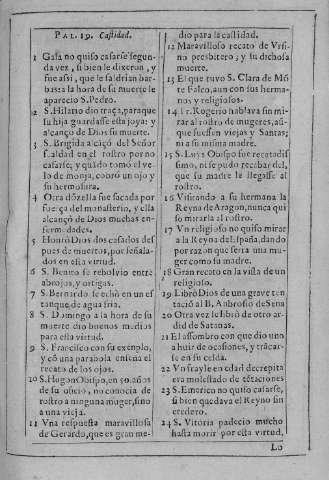 PAL. 19. Castidad.
1 Gala no quiso casarse segun-
da vez, si bien le dixeron, y
fue assi, que le saldrian bar-
bas: a la hora de su muerte le
aparecio S. Pedro.
2 S. Hilario dio traça, para que
su hija guardasse esta joya: y
alcançò de Dios su muerte.
3 S. Brigida alcançò del Señor
fealdad en el rostro porno
casarse; y quãdo tomò el ve-
lo de monja, cobrò un ojo y
su hermosura.
4 Otra dõzella fue sacada por
fuerça del monasterio, y ella
alcançò de Dios muchas en-
fermedades.
5 Honrò Dios dos casados des
pues de muertos, por señala-
dos en esta virtud.
6 S. Benito se rebolvio entre
abrojos, y ortigas.
7 S. Bernardo se echò en un es
tanque de agua fria.
8 S. Domingo a la hora de su
muerte dio buenos medios
para esta virtud.
9 S. Francisco con su exenplo,
y cõ una parabola enseña el
recato de los ojos.
10 S. Hugon Obispo, en 50. años
de su oficio, no conocia de
rostro a ninguna muger, sino
a una vieja.
11 Vna respuesta maravillosa
de Gerardo, que es gran me-
dio para la castidad.
12 Maravilloso recato de Vrsi-
no presbitero; y su dichosa
muerte.
13 El que tuvo S. Clara de Mõ
te Falco, aun con sus herma-
nos y religiosos.
14 Fr. Rogerio hablava sin mi-
rar al rostro de mugeres, aũ-
que fuessen viejas y Santas;
ni a su misma madre.
15 S. Luis Obispo fue recatadis
simo, ni se pudo recabar del,
que su madre le llegasse al
rostro.
16 Visitando a su hermana la
Reyna de Aragon, nunca qui
so mirarla al rostro.
17 Vn religioso no quiso mirar
a la Reyna de España, dando
por razon que seria una mu-
ger como su madre.
18 Gran recato en la vista de un
religioso.
19 Librò Dios de una greve ten
tació al B. Anbrosio de Sena
20 Otra vez le librò de otro ar-
did de Satanas.
21 El assombro con que dio uno
a huir de ocasiones, y trãcar-
se en su celda.
22 Vn frayle en edad decrepita
era molestado de tẽtaciones
23 S. Emerico no quiso casarse,
si bien quedava el Reyno sin
eredero.
24 S. Vitoria padecio mucho
hasta morir por esta virtud,
Lo